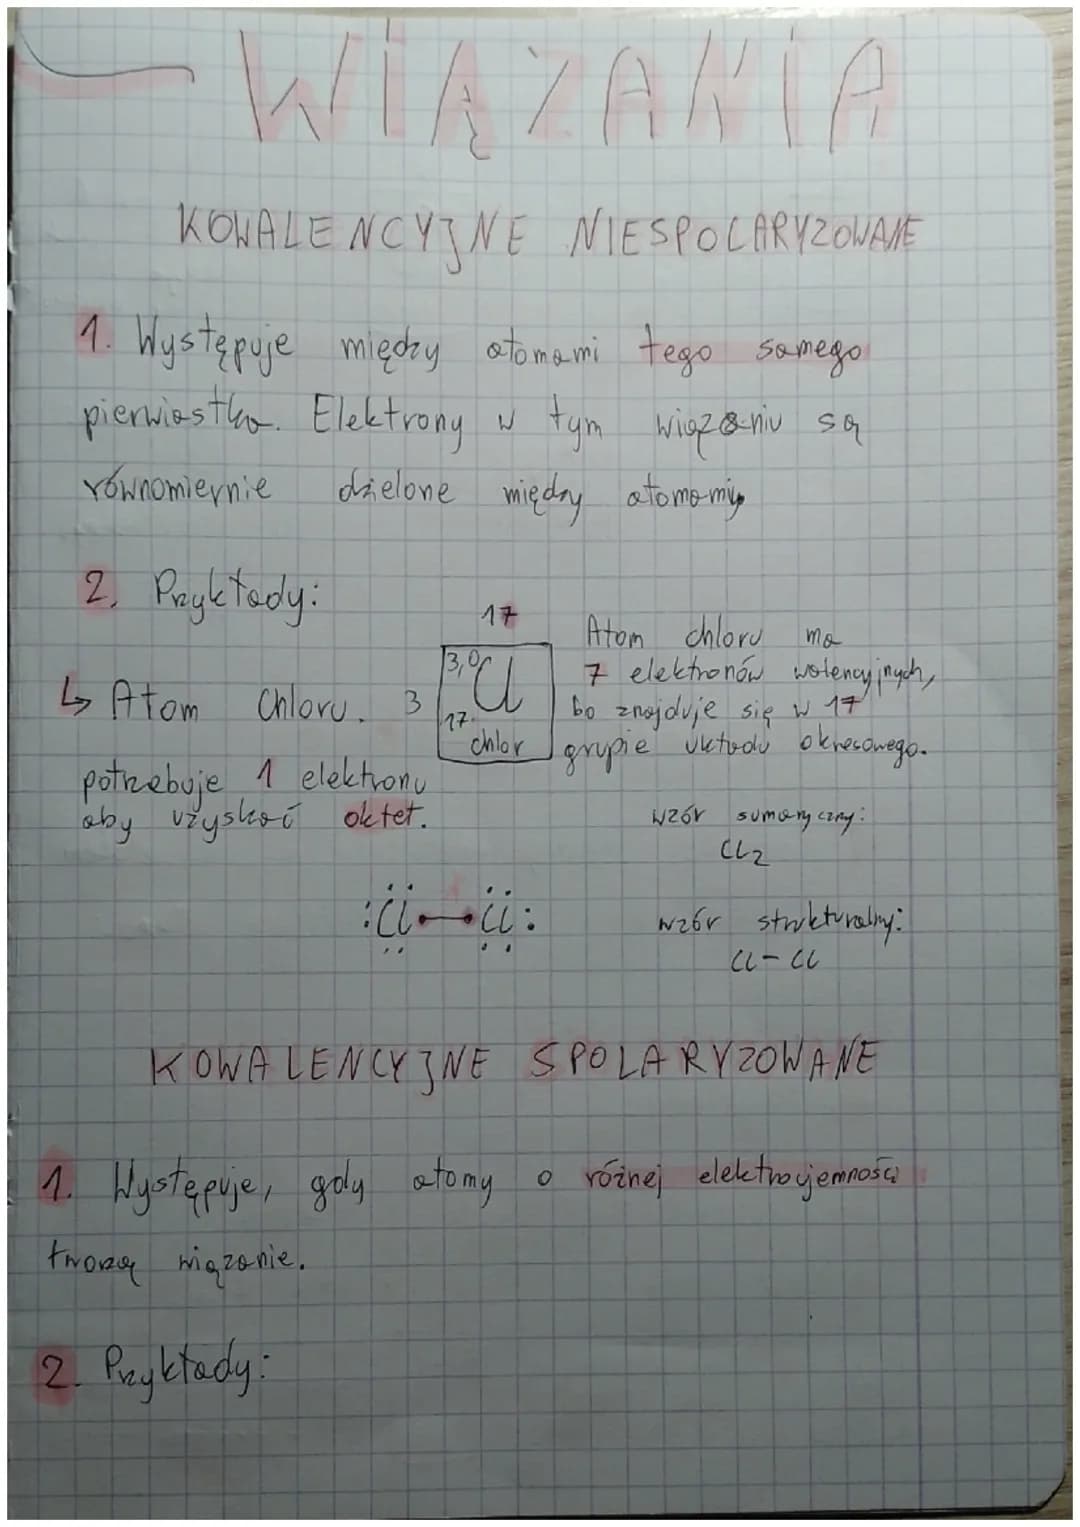 WIĄZANIA
KOWALENCYJNE NIESPOLARYZOWANE
1. Występuje między atomami tego samego
pierwiastka. Elektrony w tym wiązaniu są
równomiernie dzielone między atomami.
2. Przykłady:
17
Atom chloru ma
7 elektronów walencyjnych,
bo znajduje się w 17
grupie układu okresowego.
↳ Atom Chloru. 3
3,0 Cl
17
chlor
potrzebuje 1 elektronu
aby uzyskać oktet.
wzór sumaryczny:
Cl2
:Cl—Cl:
wzór strukturalny:
Cl-Cl
KOWALENCYJNE SPOLARYZOWANE
1. Występuje, gdy atomy o różnej elektroujemności
tworzą wiązanie.
2. Przykłady: